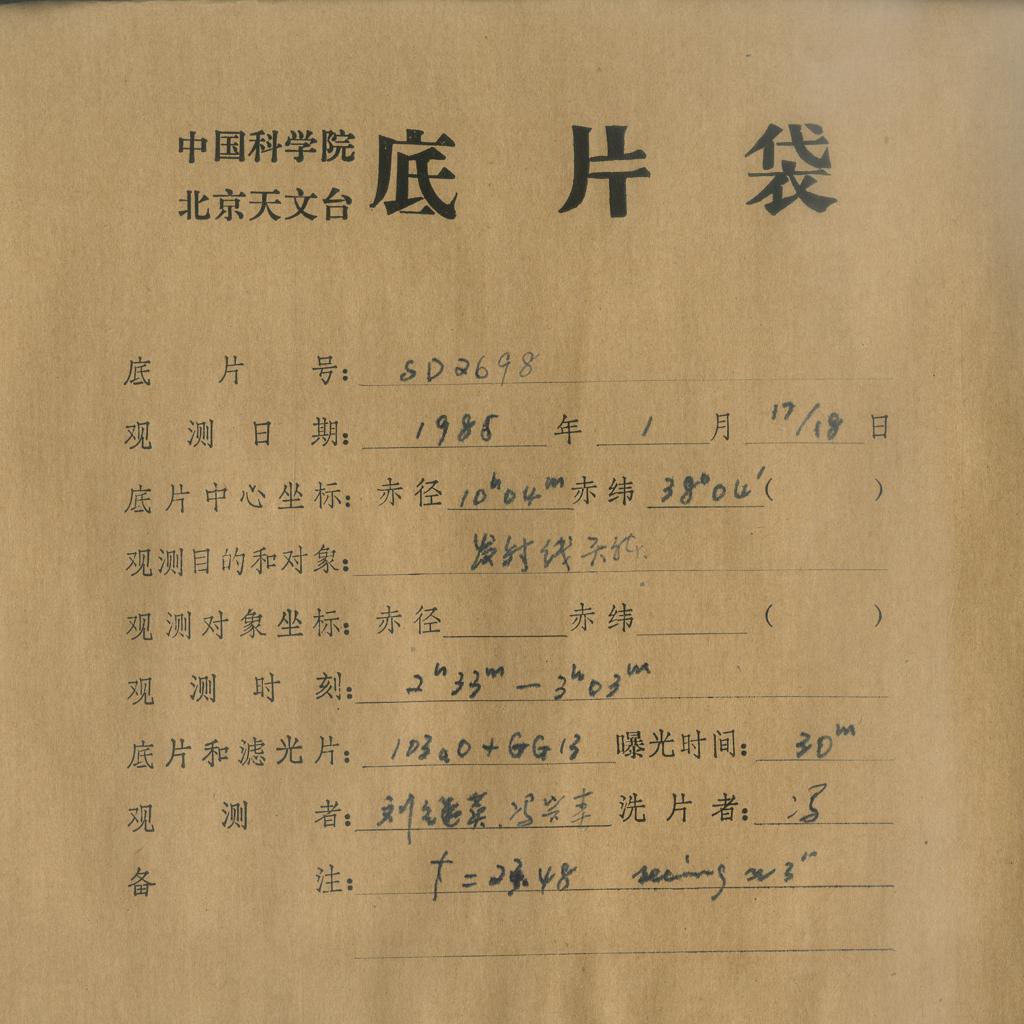 中国科学院
北京天文台
底片袋
底片号: SD2698
观测日期: 1985 年 1 月 17/18 日
底片中心坐标: 赤径 10h04m 赤纬 38°04′ ( )
观测目的和对象: 发射线天体
观测对象坐标: 赤径 赤纬 ( )
观测时刻: 2h33m — 3h03m
底片和滤光片: 103aO+GG13 曝光时间: 30m
观测者: 刘 英. 冯兴丰 洗片者: 冯
备注: f = 23.48 seeing ≈ 3″